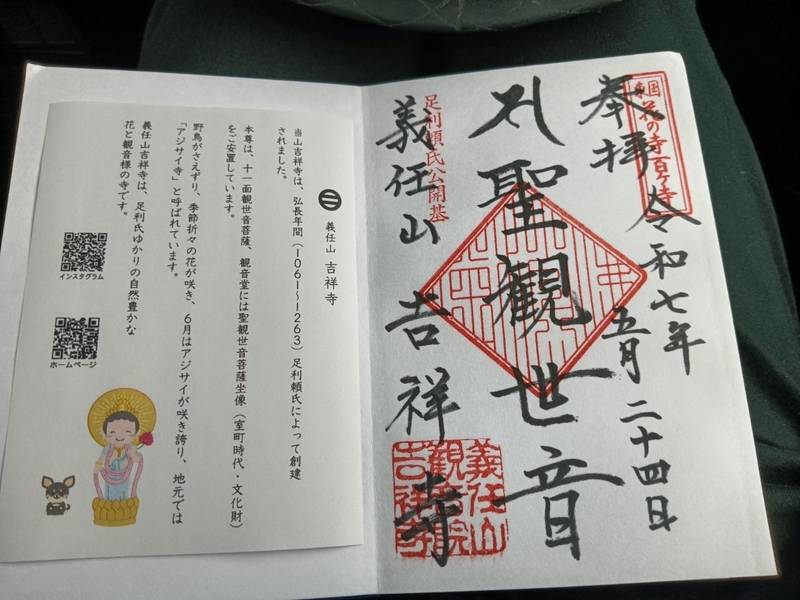 東国花の寺百ヶ寺
奉拝
令和七年
五月二十四日
聖観世音
足利頼氏公開基
義任山 吉祥寺
義任山
観音院
吉祥寺
義任山 吉祥寺
当山吉祥寺は、弘長年間（1061～1263）足利頼氏によって創建
されました。
本尊は、十一面観世音菩薩、観音堂には聖観世音菩薩坐像（室町時代・文化財）
をご安置しています。
野鳥がさえずり、季節折々の花が咲き、6月はアジサイが咲き誇り、地元では
「アジサイ寺」と呼ばれています。
義任山吉祥寺は、足利氏ゆかりの自然豊かな
花と観音様の寺です。
インスタグラム
ホームページ